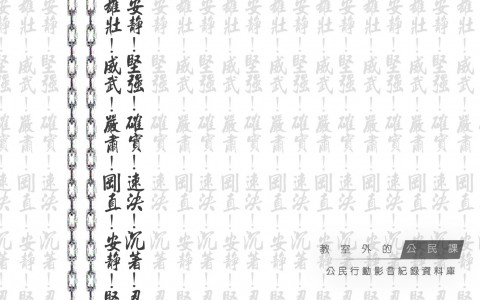 安靜！堅強！確實！速決！沉著！忍
雄壯！威武！嚴肅！剛直！安靜！堅
教室外的公民課
公民行動影音紀錄資料庫